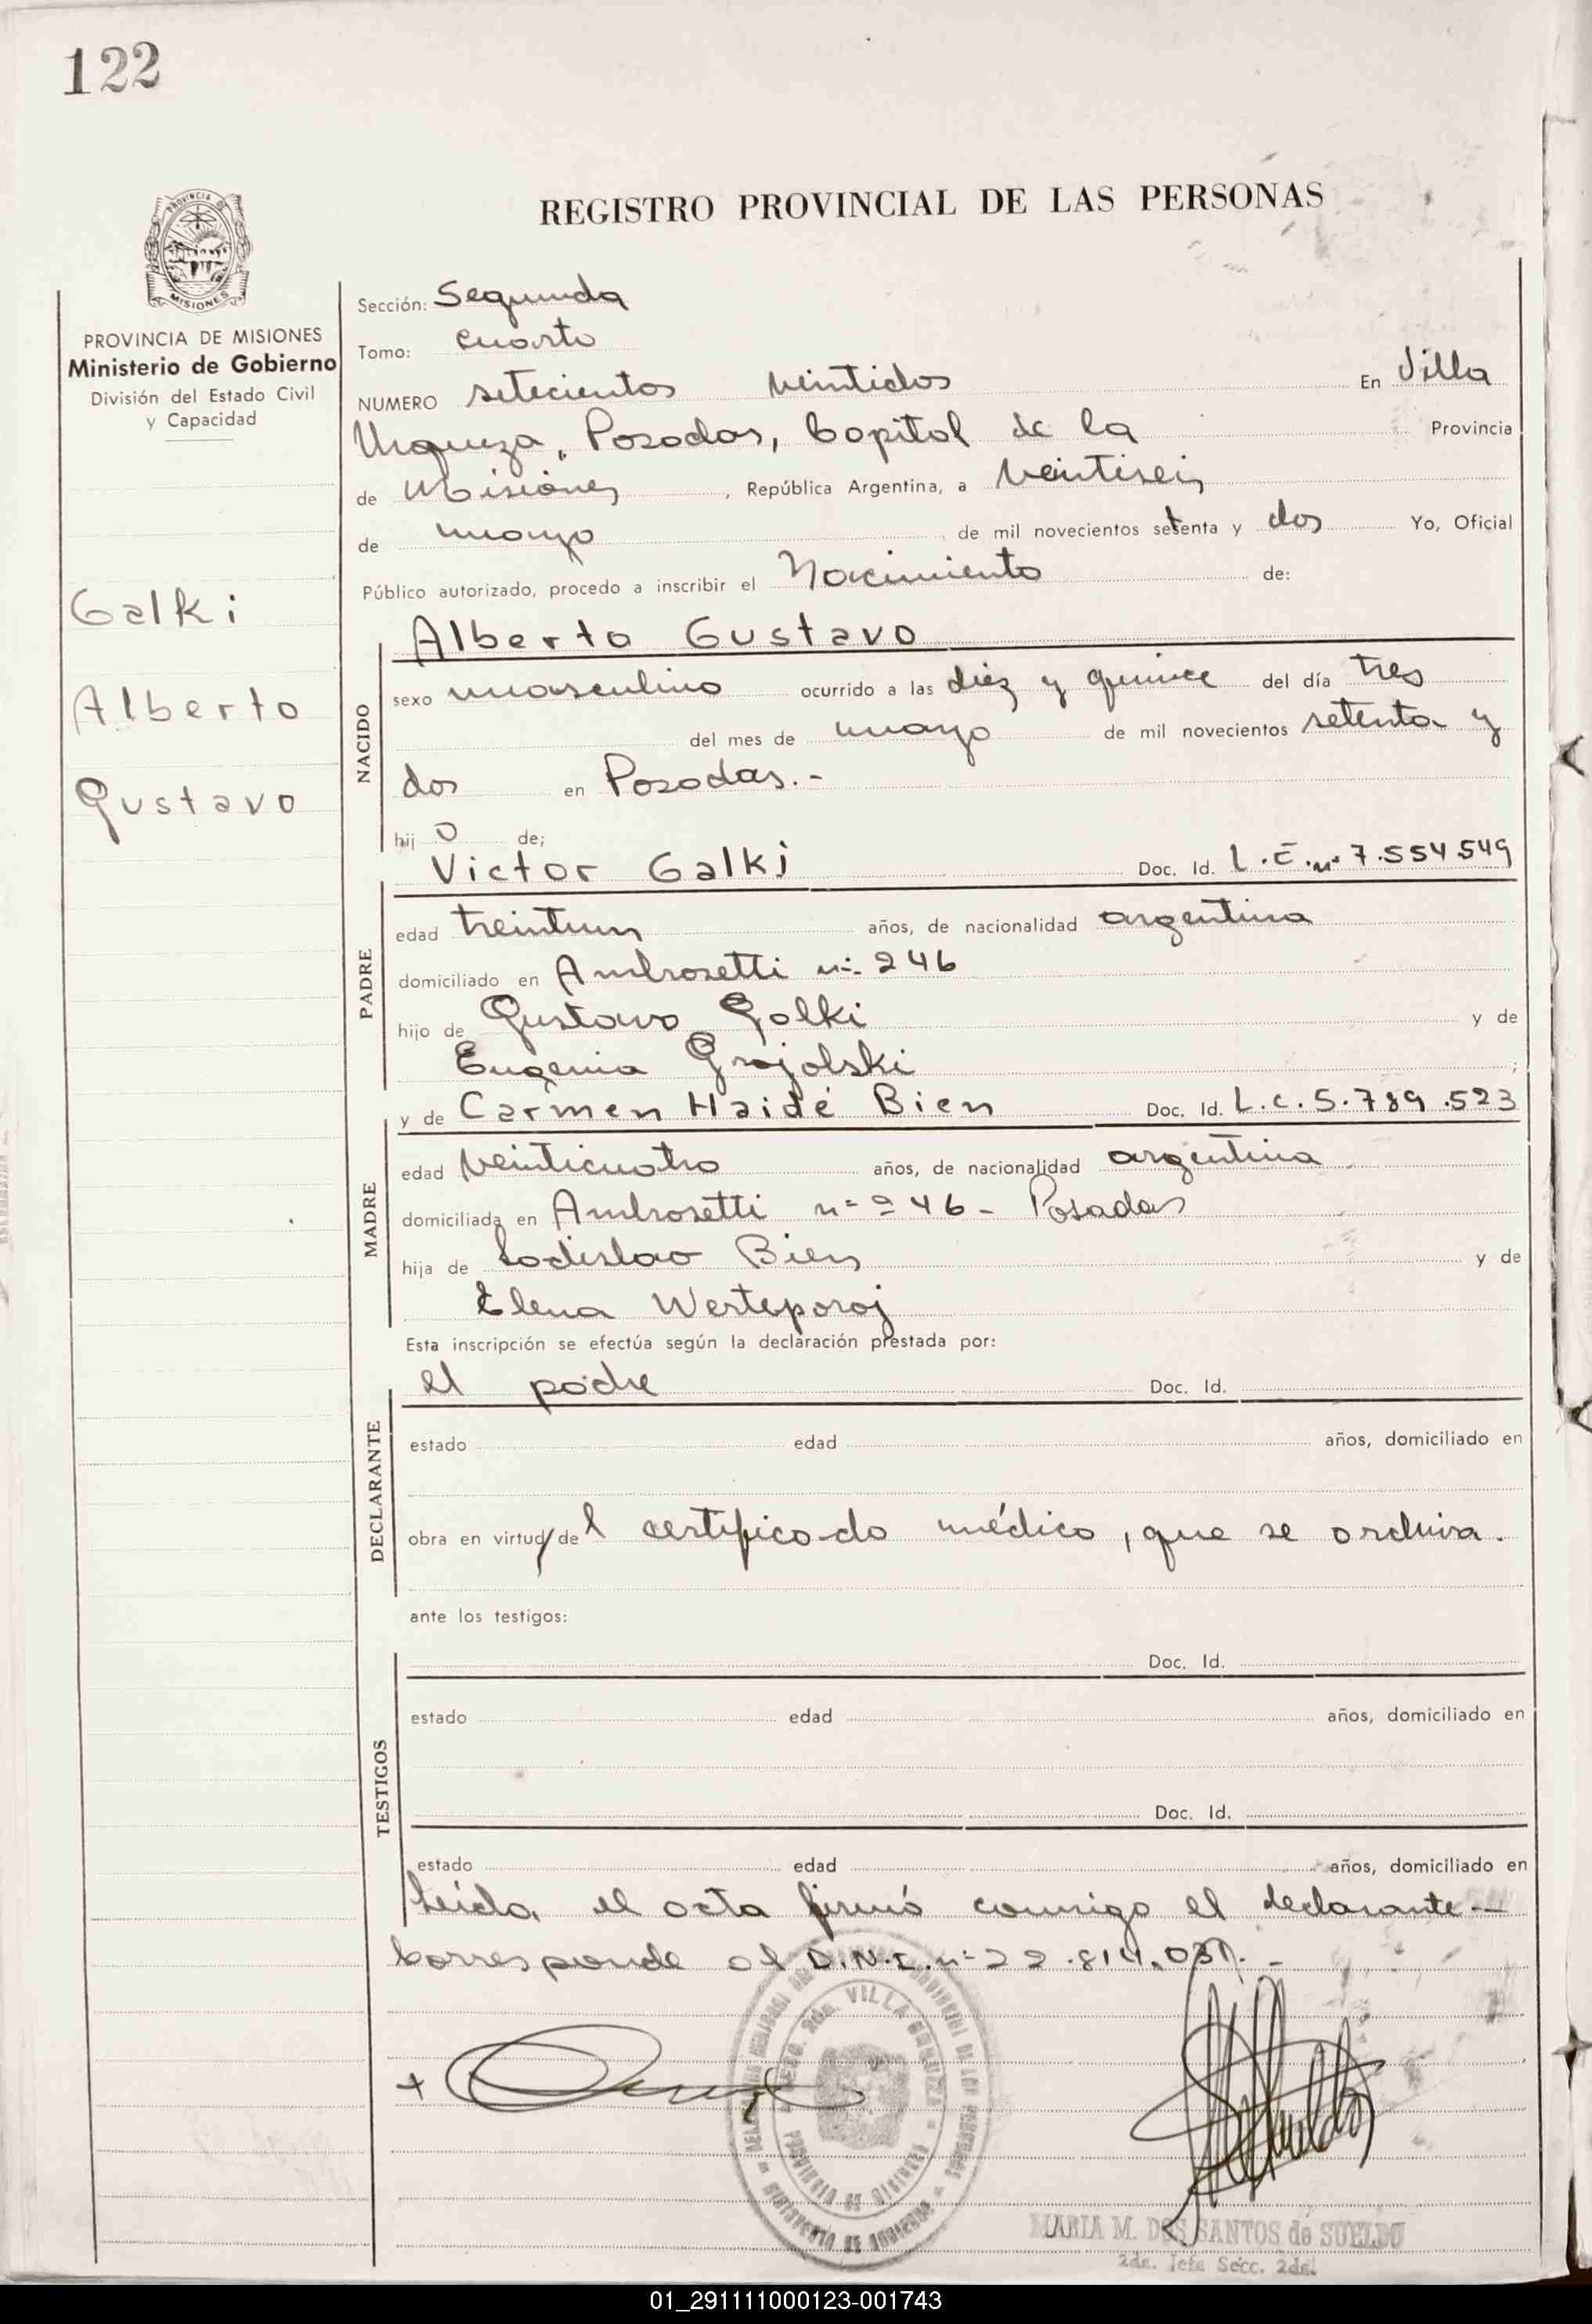 122
REGISTRO PROVINCIAL DE LAS PERSONAS
PROVINCIA
MISIONES
PROVINCIA DE MISIONES
Ministerio de Gobierno
División del Estado Civil
y Capacidad
Galki
Alberto
Gustavo
Sección: Segunda
Tomo: cuarto
NUMERO setecientos veintidos En Villa
Urquiza, Posadas, Capital de la Provincia
de Misiones, República Argentina, a veintiseis
de mayo de mil novecientos setenta y dos Yo, Oficial
Público autorizado, procedo a inscribir el Nacimiento de:
NACIDO
Alberto Gustavo
sexo masculino ocurrido a las diez y quince del día tres
del mes de mayo de mil novecientos setenta y
dos en Posadas.-
hij o de;
PADRE
Victor Galki Doc. Id. L.E. nº 7.554.549
edad treintiun años, de nacionalidad argentina
domiciliado en Ambrosetti nº 246
hijo de Gustavo Galki y de
Eugenia Grajolski ;
MADRE
y de Carmen Haidé Bien Doc. Id. L.C. 5.789.523
edad veinticuatro años, de nacionalidad argentina
domiciliada en Ambrosetti nº 246 - Posadas
hija de Ladislao Bien y de
Elena Werteporoj
Esta inscripción se efectúa según la declaración prestada por:
DECLARANTE
el padre Doc. Id.
estado edad años, domiciliado en
obra en virtud del certificado médico, que se archiva.
ante los testigos:
TESTIGOS
Doc. Id.
estado edad años, domiciliado en
Doc. Id.
estado edad años, domiciliado en
Leida el acta firmó conmigo el declarante.-
Corresponde al D.N.I. nº 22.814.031.-
VILLA URQUIZA
PROVINCIA DE MISIONES
MINISTERIO DE GOBIERNO
MARIA M. DOS SANTOS de SUELDO
2da. Jefa Secc. 2da.
01_291111000123-001743